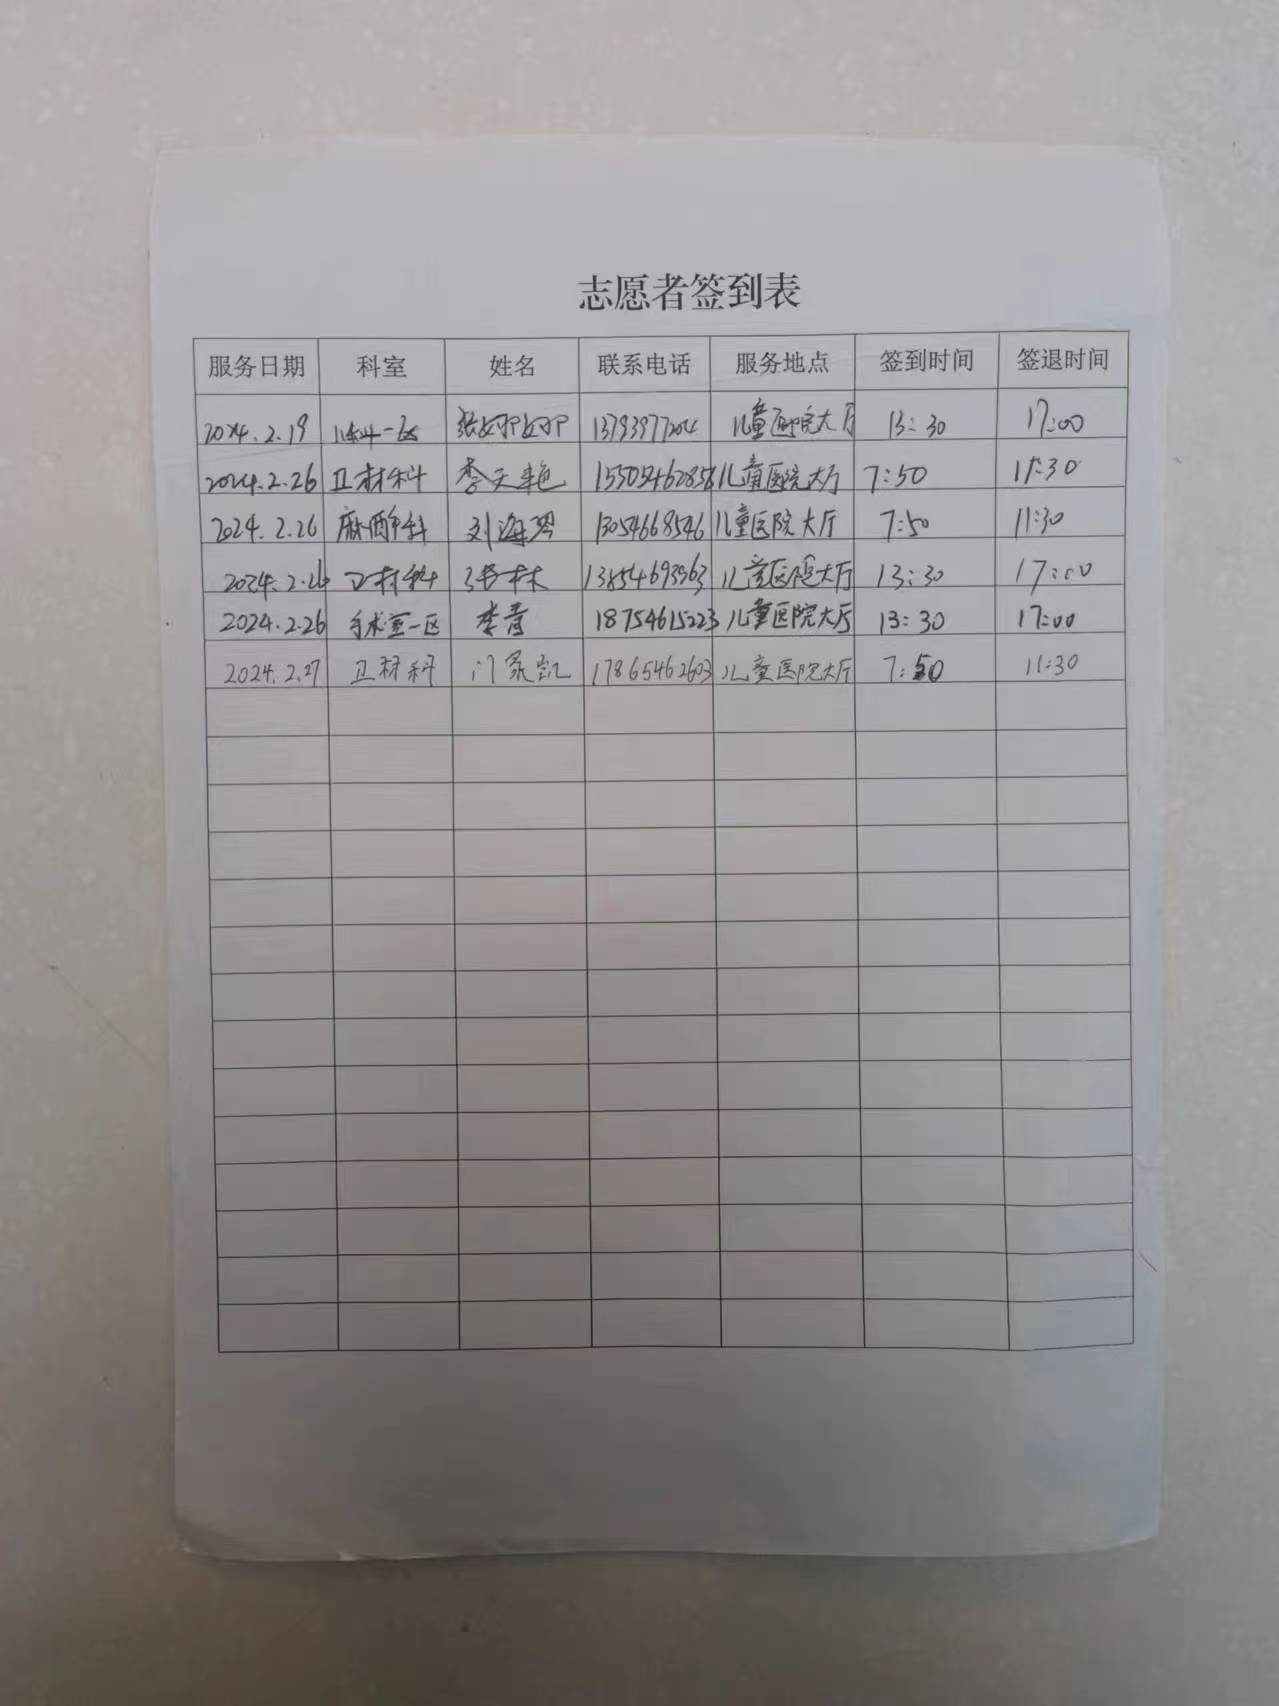 志愿者签到表
服务日期 科室 姓名 联系电话 服务地点 签到时间 签退时间
2024.2.19 儿科一区 张婷婷 13793977204 儿童医院大厅 13:30 17:00
2024.2.26 卫材科 李天艳 儿童医院大厅 7:50 11:30
2024.2.26 麻醉科 刘海 13054668546 儿童医院大厅 7:50 11:30
2024.2.26 卫材科 张林 13854693963 儿童医院大厅 13:30 17:00
2024.2.26 手术室一区 李青 18754615223 儿童医院大厅 13:30 17:00
2024.2.27 卫材科 门家凯 17865462603 儿童医院大厅 7:50 11:30